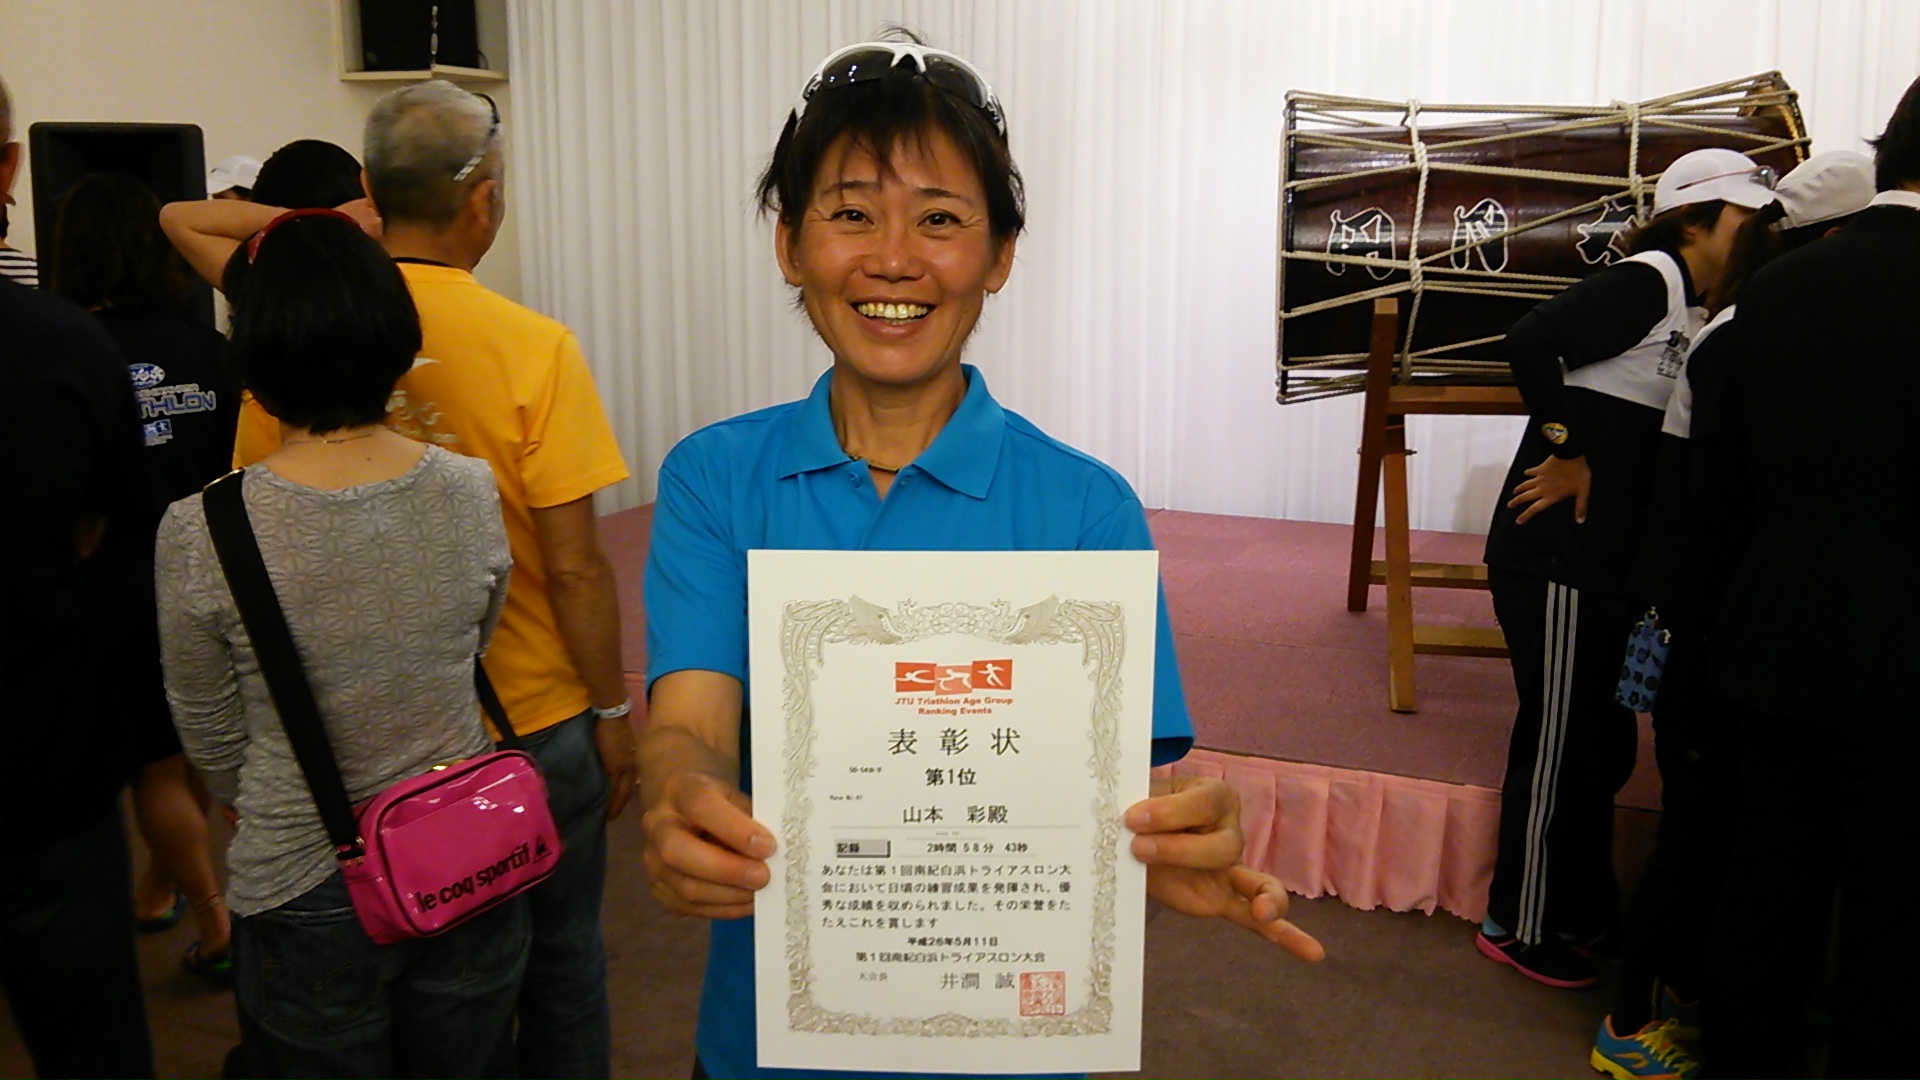 THLON
le coq sportif
JTU Triathlon Age Group
Ranking Events
表彰状
50-54女子
第1位
Race No.47
山本 彩殿
記録 2時間 58分 43秒
あなたは第1回南紀白浜トライアスロン大
会において日頃の練習成果を発揮され、優
秀な成績を収められました。その栄誉をた
たえこれを賞します
平成26年5月11日
第1回南紀白浜トライアスロン大会
大会長 井澗 誠